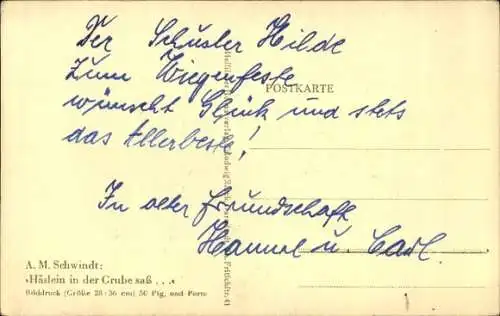 Der Schuster Hilde
zum Wiegenfeste
POSTKARTE
wünscht Glück und stets
das Allerbeste!
In alter Freundschaft
Hannel u. Carl.
A. M. Schwindt:
»Häslein in der Grube saß . . .«
Bilddruck (Größe 28×36 cm) 50 Pfg. und Porto